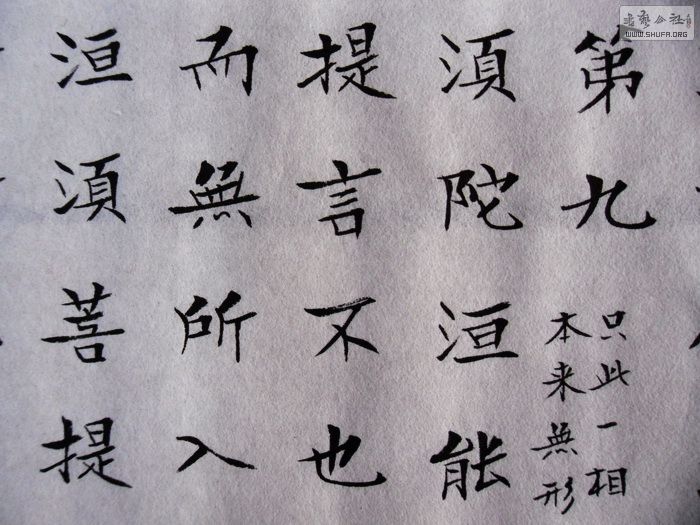 書藝公社
WWW.SHUFA.ORG
第九
只此一相
本来無形
湏陀洹能
提言不也
而無所入
洹湏菩提